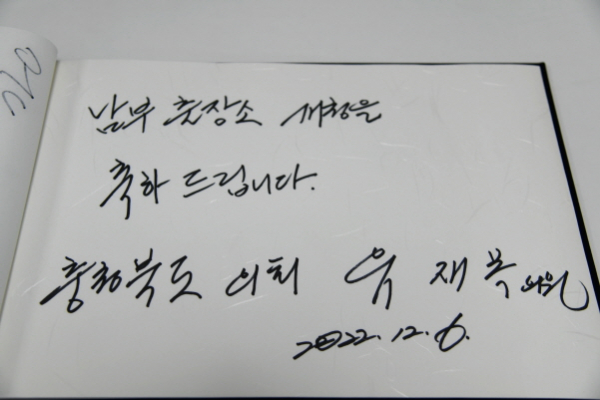 남부 출장소 개청을
축하 드립니다.
충청북도 의회 유재목 의원
2022.12.6.